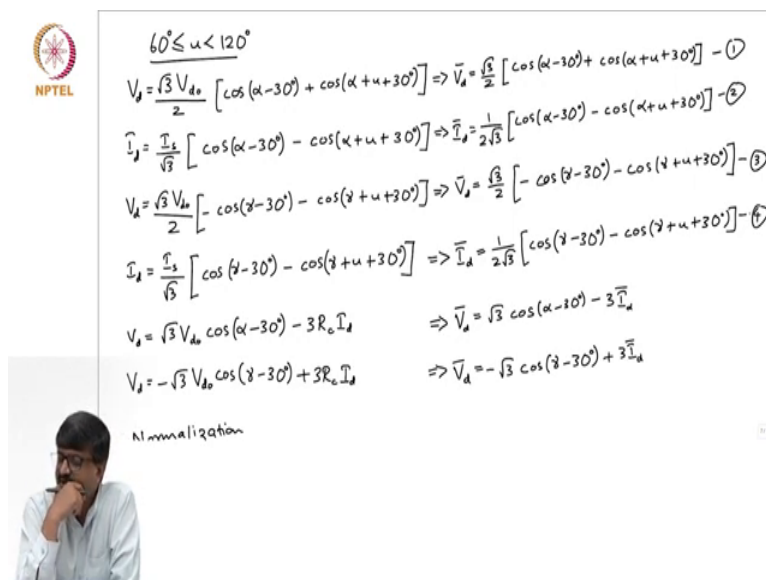 60° ≤ u < 120°
V_d = √3 V_do / 2 [cos(α-30°) + cos(α+u+30°)] ⇒ V̄_d = √3/2 [cos(α-30°) + cos(α+u+30°)] - ①
I_d = I_s/√3 [cos(α-30°) - cos(α+u+30°)] ⇒ Ī_d = 1/2√3 [cos(α-30°) - cos(α+u+30°)] - ②
NPTEL
V_d = √3 V_do / 2 [-cos(γ-30°) - cos(γ+u+30°)] ⇒ V̄_d = √3/2 [-cos(γ-30°) - cos(γ+u+30°)] - ③
I_d = I_s/√3 [cos(γ-30°) - cos(γ+u+30°)] ⇒ Ī_d = 1/2√3 [cos(γ-30°) - cos(γ+u+30°)] - ④
V_d = √3 V_do cos(α-30°) - 3R_c I_d ⇒ V̄_d = √3 cos(α-30°) - 3Ī_d
V_d = -√3 V_do cos(γ-30°) + 3R_c I_d ⇒ V̄_d = -√3 cos(γ-30°) + 3Ī_d
Normalization